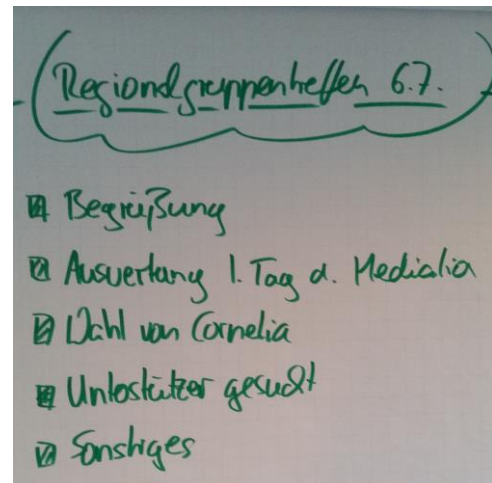 Regionalgruppentreffen 6.7.
Begrüßung
Auswertung 1. Tag d. Medialia
Wahl von Cornelia
Unterstützer gesucht
Sonstiges